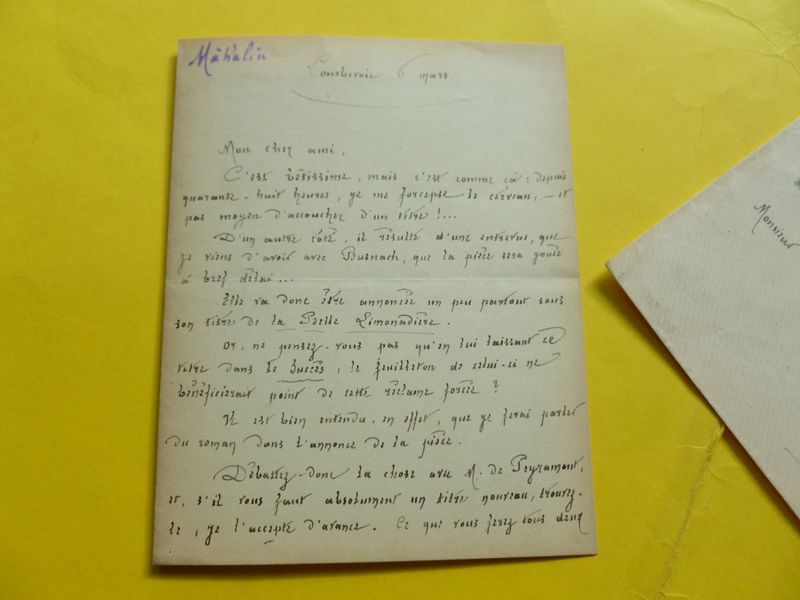 Mahalin
Courbevoie 6 mars
Mon cher ami,
C'est bêtissime, mais c'est comme çà : depuis
quarante-huit heures, je me forceps le cerveau, – et
pas moyen d'accoucher d'un titre !...
D'un autre côté, il résulte d'une entrevue, que
je viens d'avoir avec Busnach, que la pièce sera jouée
à bref délai...
Elle va donc être annoncée un peu partout sous
son titre de la Belle Limonadière.
Or, ne pensez-vous pas qu'en lui laissant ce
titre dans le Succès, le feuilleton de celui-ci ne
bénéficierait point de cette réclame forcée ?
Il est bien entendu, en effet, que je ferai parler
du roman dans l'annonce de la pièce.
Débattez-donc la chose avec M. de Peyramont,
et, s'il vous faut absolument un titre nouveau, trouvez-
le, je l'accepte d'avance. Ce que vous ferez tous deux
Monsieur